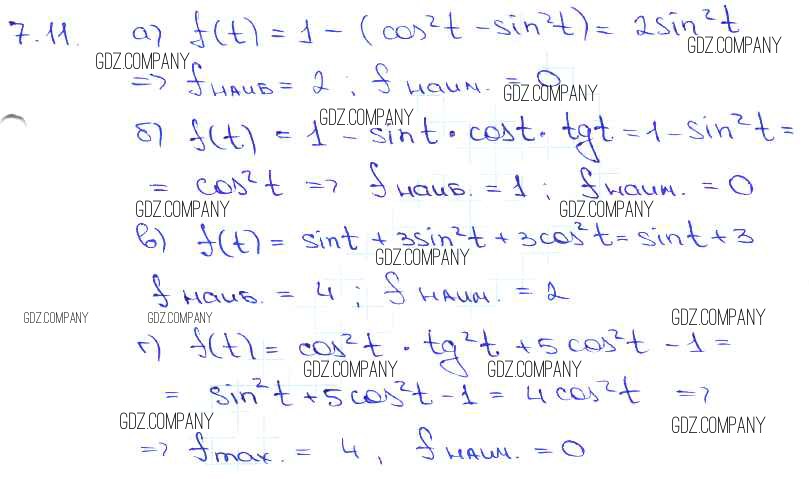 7.11. а) f(t) = 1 - (cos²t - sin²t) = 2sin²t
GDZ.COMPANY GDZ.COMPANY
=> fнаиб = 2 ; fнаим. = 0
GDZ.COMPANY
GDZ.COMPANY
б) f(t) = 1 - sint · cost · tgt = 1 - sin²t =
= cos²t => fнаиб. = 1 ; fнаим. = 0
GDZ.COMPANY GDZ.COMPANY
в) f(t) = sint + 3sin²t + 3cos²t = sint + 3
GDZ.COMPANY
fнаиб. = 4 ; fнаим. = 2
GDZ.COMPANY GDZ.COMPANY GDZ.COMPANY
г) f(t) = cos²t · tg²t + 5cos²t - 1 =
GDZ.COMPANY GDZ.COMPANY
= sin²t + 5cos²t - 1 = 4cos²t =>
GDZ.COMPANY GDZ.COMPANY
=> fmax. = 4, fнаим. = 0